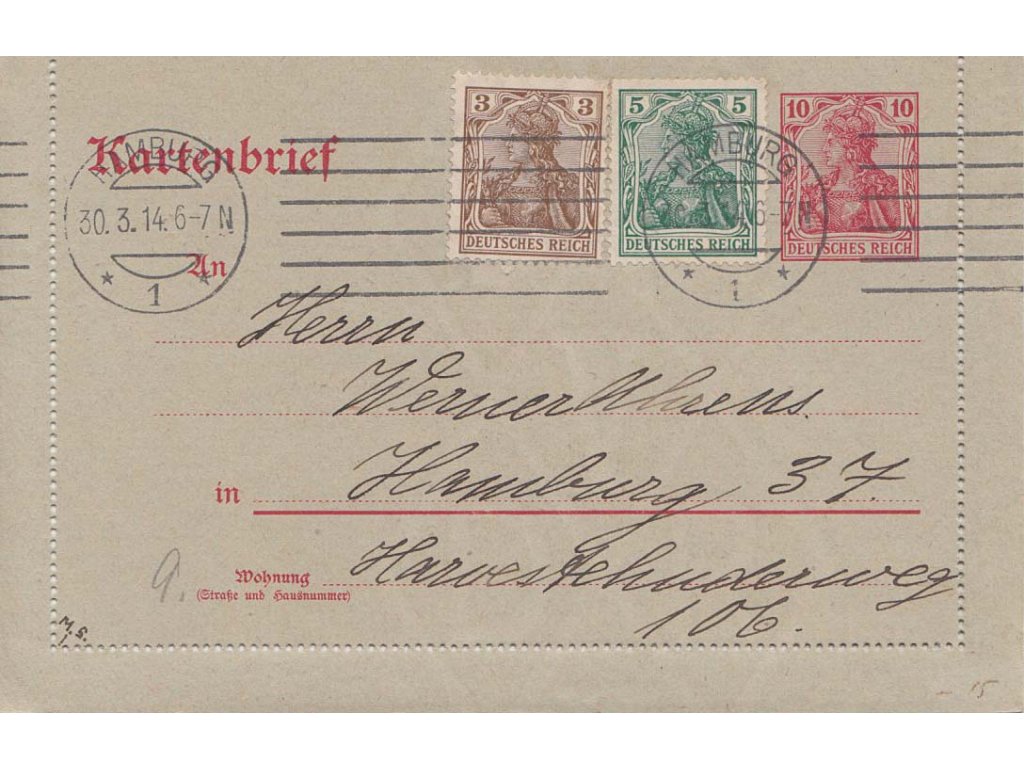 3 3
DEUTSCHES REICH
5 5
DEUTSCHES REICH
10 10
DEUTSCHES REICH
Kartenbrief
HAMBURG
30.3.14.6-7N
* 1 *
HAMBURG
14.6-7N
* 1 *
An
Herrn
Werner Ahrens.
in Hamburg 37.
Wohnung Harvestehuderweg
(Straße und Hausnummer)
106.
9.
M.S.
1.
- 15